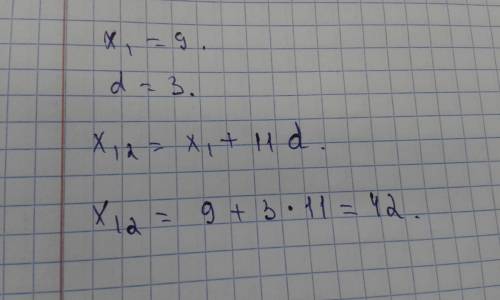 x₁ = 9.
d = 3.
x₁₂ = x₁ + 11 d.
x₁₂ = 9 + 3 · 11 = 42.